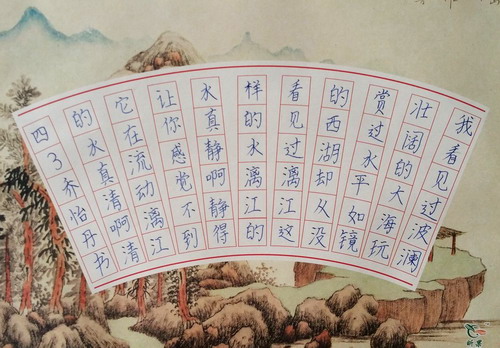 我看见过波澜
壮阔的大海玩
赏过水平如镜
的西湖却从没
看见过漓江这
样的水漓江的
水真静啊静得
让你感觉不到
它在流动漓江
的水真清啊清
四3亦怡丹书